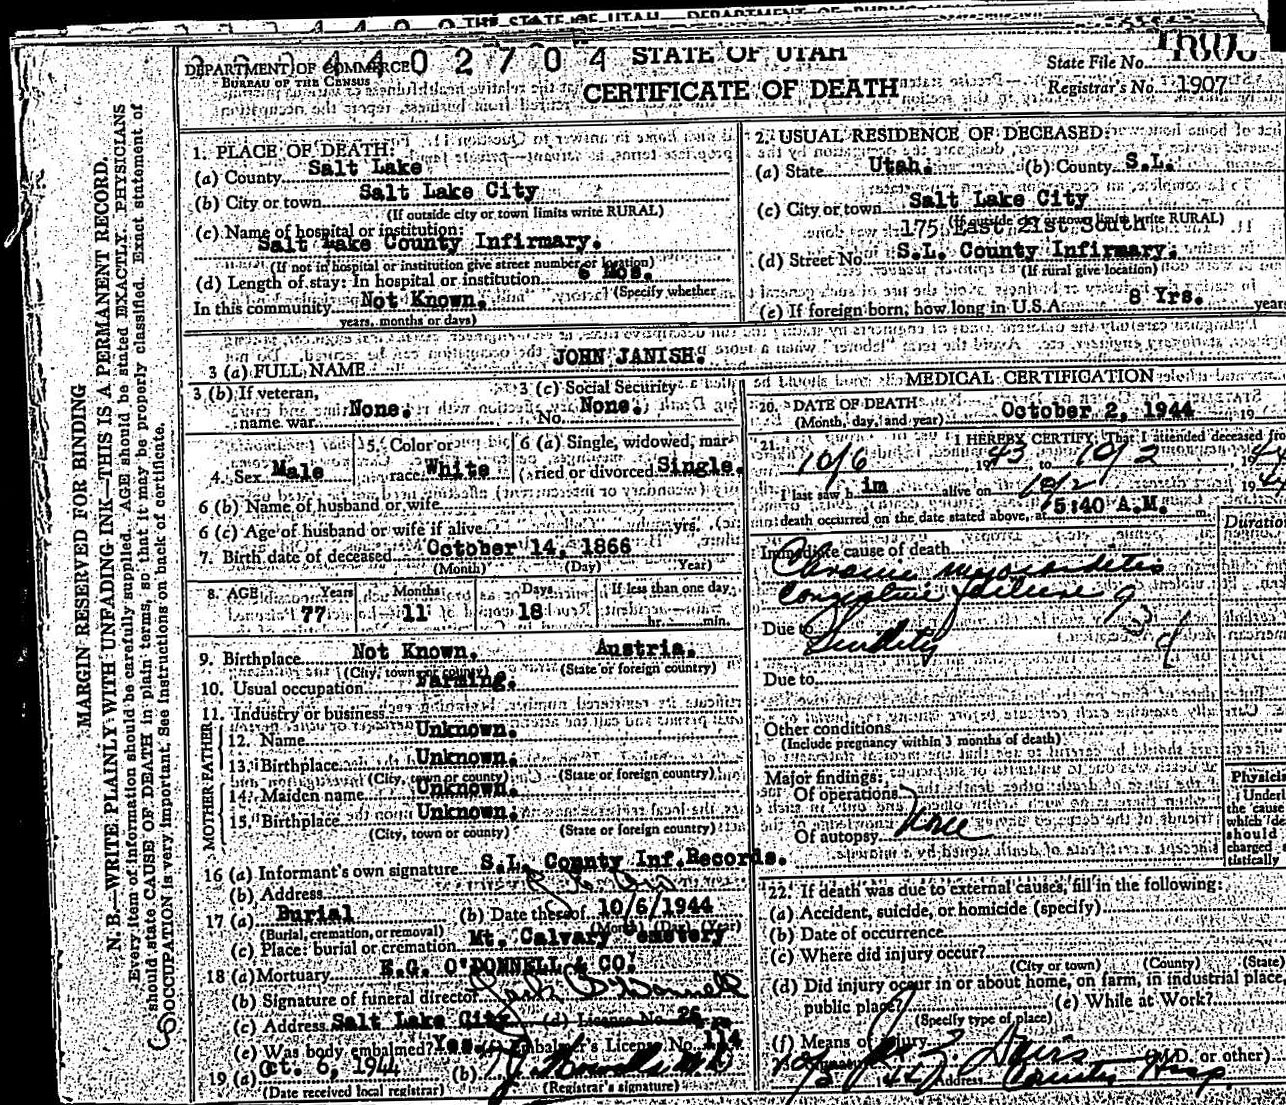 THE STATE OF UTAH — DEPARTMENT OF
4402704
DEPARTMENT OF COMMERCE
BUREAU OF THE CENSUS
STATE OF UTAH
CERTIFICATE OF DEATH
State File No.
Registrar's No. 1907
MARGIN RESERVED FOR BINDING
N. B.—WRITE PLAINLY WITH UNFADING INK—THIS IS A PERMANENT RECORD.
Every item of information should be carefully supplied. AGE should be stated EXACTLY. PHYSICIANS
should state CAUSE OF DEATH in plain terms, so that it may be properly classified. Exact statement of
OCCUPATION is very important. See instructions on back of certificate.
1. PLACE OF DEATH:
(a) County Salt Lake
(b) City or town Salt Lake City
(If outside city or town limits write RURAL)
(c) Name of hospital or institution:
Salt Lake County Infirmary.
(If not in hospital or institution give street number or location)
(d) Length of stay: In hospital or institution 6 Mos.
(Specify whether
In this community Not Known.
years, months or days)
2. USUAL RESIDENCE OF DECEASED:
(a) State Utah. (b) County S.L.
(c) City or town Salt Lake City
(If outside city or town limits write RURAL)
175 East 21st South
(d) Street No. S.L. County Infirmary.
(If rural give location)
(e) If foreign born, how long in U.S.A. 8 Yrs. year
3 (a) FULL NAME JOHN JANISH.
3 (b) If veteran, name war None.
3 (c) Social Security No. None.
4. Sex Male
5. Color or race White
6 (a) Single, widowed, married or divorced Single.
6 (b) Name of husband or wife
6 (c) Age of husband or wife if alive yrs.
7. Birth date of deceased October 14, 1866
(Month) (Day) Year)
8. AGE Years Months Days If less than one day
77 11 18 hr. min.
9. Birthplace Not Known. Austria.
(City, town or county) (State or foreign country)
10. Usual occupation Farming.
11. Industry or business
FATHER
12. Name Unknown.
13. Birthplace Unknown.
(City, town or county) (State or foreign country)
MOTHER
14. Maiden name Unknown.
15. Birthplace Unknown.
(City, town or county) (State or foreign country)
16 (a) Informant's own signature S.L. County Inf. Records.
(b) Address
17 (a) Burial (b) Date thereof 10/6/1944
(Burial, cremation, or removal) (Month) (Day) (Year)
(c) Place: burial or cremation Mt. Calvary Cemetery
18 (a) Mortuary E.G. O'DONNELL & CO.
(b) Signature of funeral director O'Donnell
(c) Address Salt Lake City (d) License No. 26
(e) Was body embalmed? Yes. Embalmer's License No. 114
19 (a) Oct. 6, 1944 (b)
(Date received local registrar) (Registrar's signature)
MEDICAL CERTIFICATION
20. DATE OF DEATH October 2, 1944 19
(Month, day, and year)
21. I HEREBY CERTIFY, That I attended deceased
10/6 1943 to 10/2 1944
I last saw him alive on 10/2 1944
death occurred on the date stated above, at 5:40 A.M. m.
Duration
Immediate cause of death
Chronic myocarditis
Congestive failure
Due to Senility
Due to
Other conditions
(Include pregnancy within 3 months of death)
Major findings:
Of operations
Of autopsy None
Physicia
Underl
the cause
which de
should
charged
tistically
22. If death was due to external causes, fill in the following:
(a) Accident, suicide, or homicide (specify)
(b) Date of occurrence
(c) Where did injury occur?
(City or town) (County) (State)
(d) Did injury occur in or about home, on farm, in industrial place
public place? (e) While at Work?
(Specify type of place)
(f) Means of injury
Signature (M.D. or other)
Address County Hosp